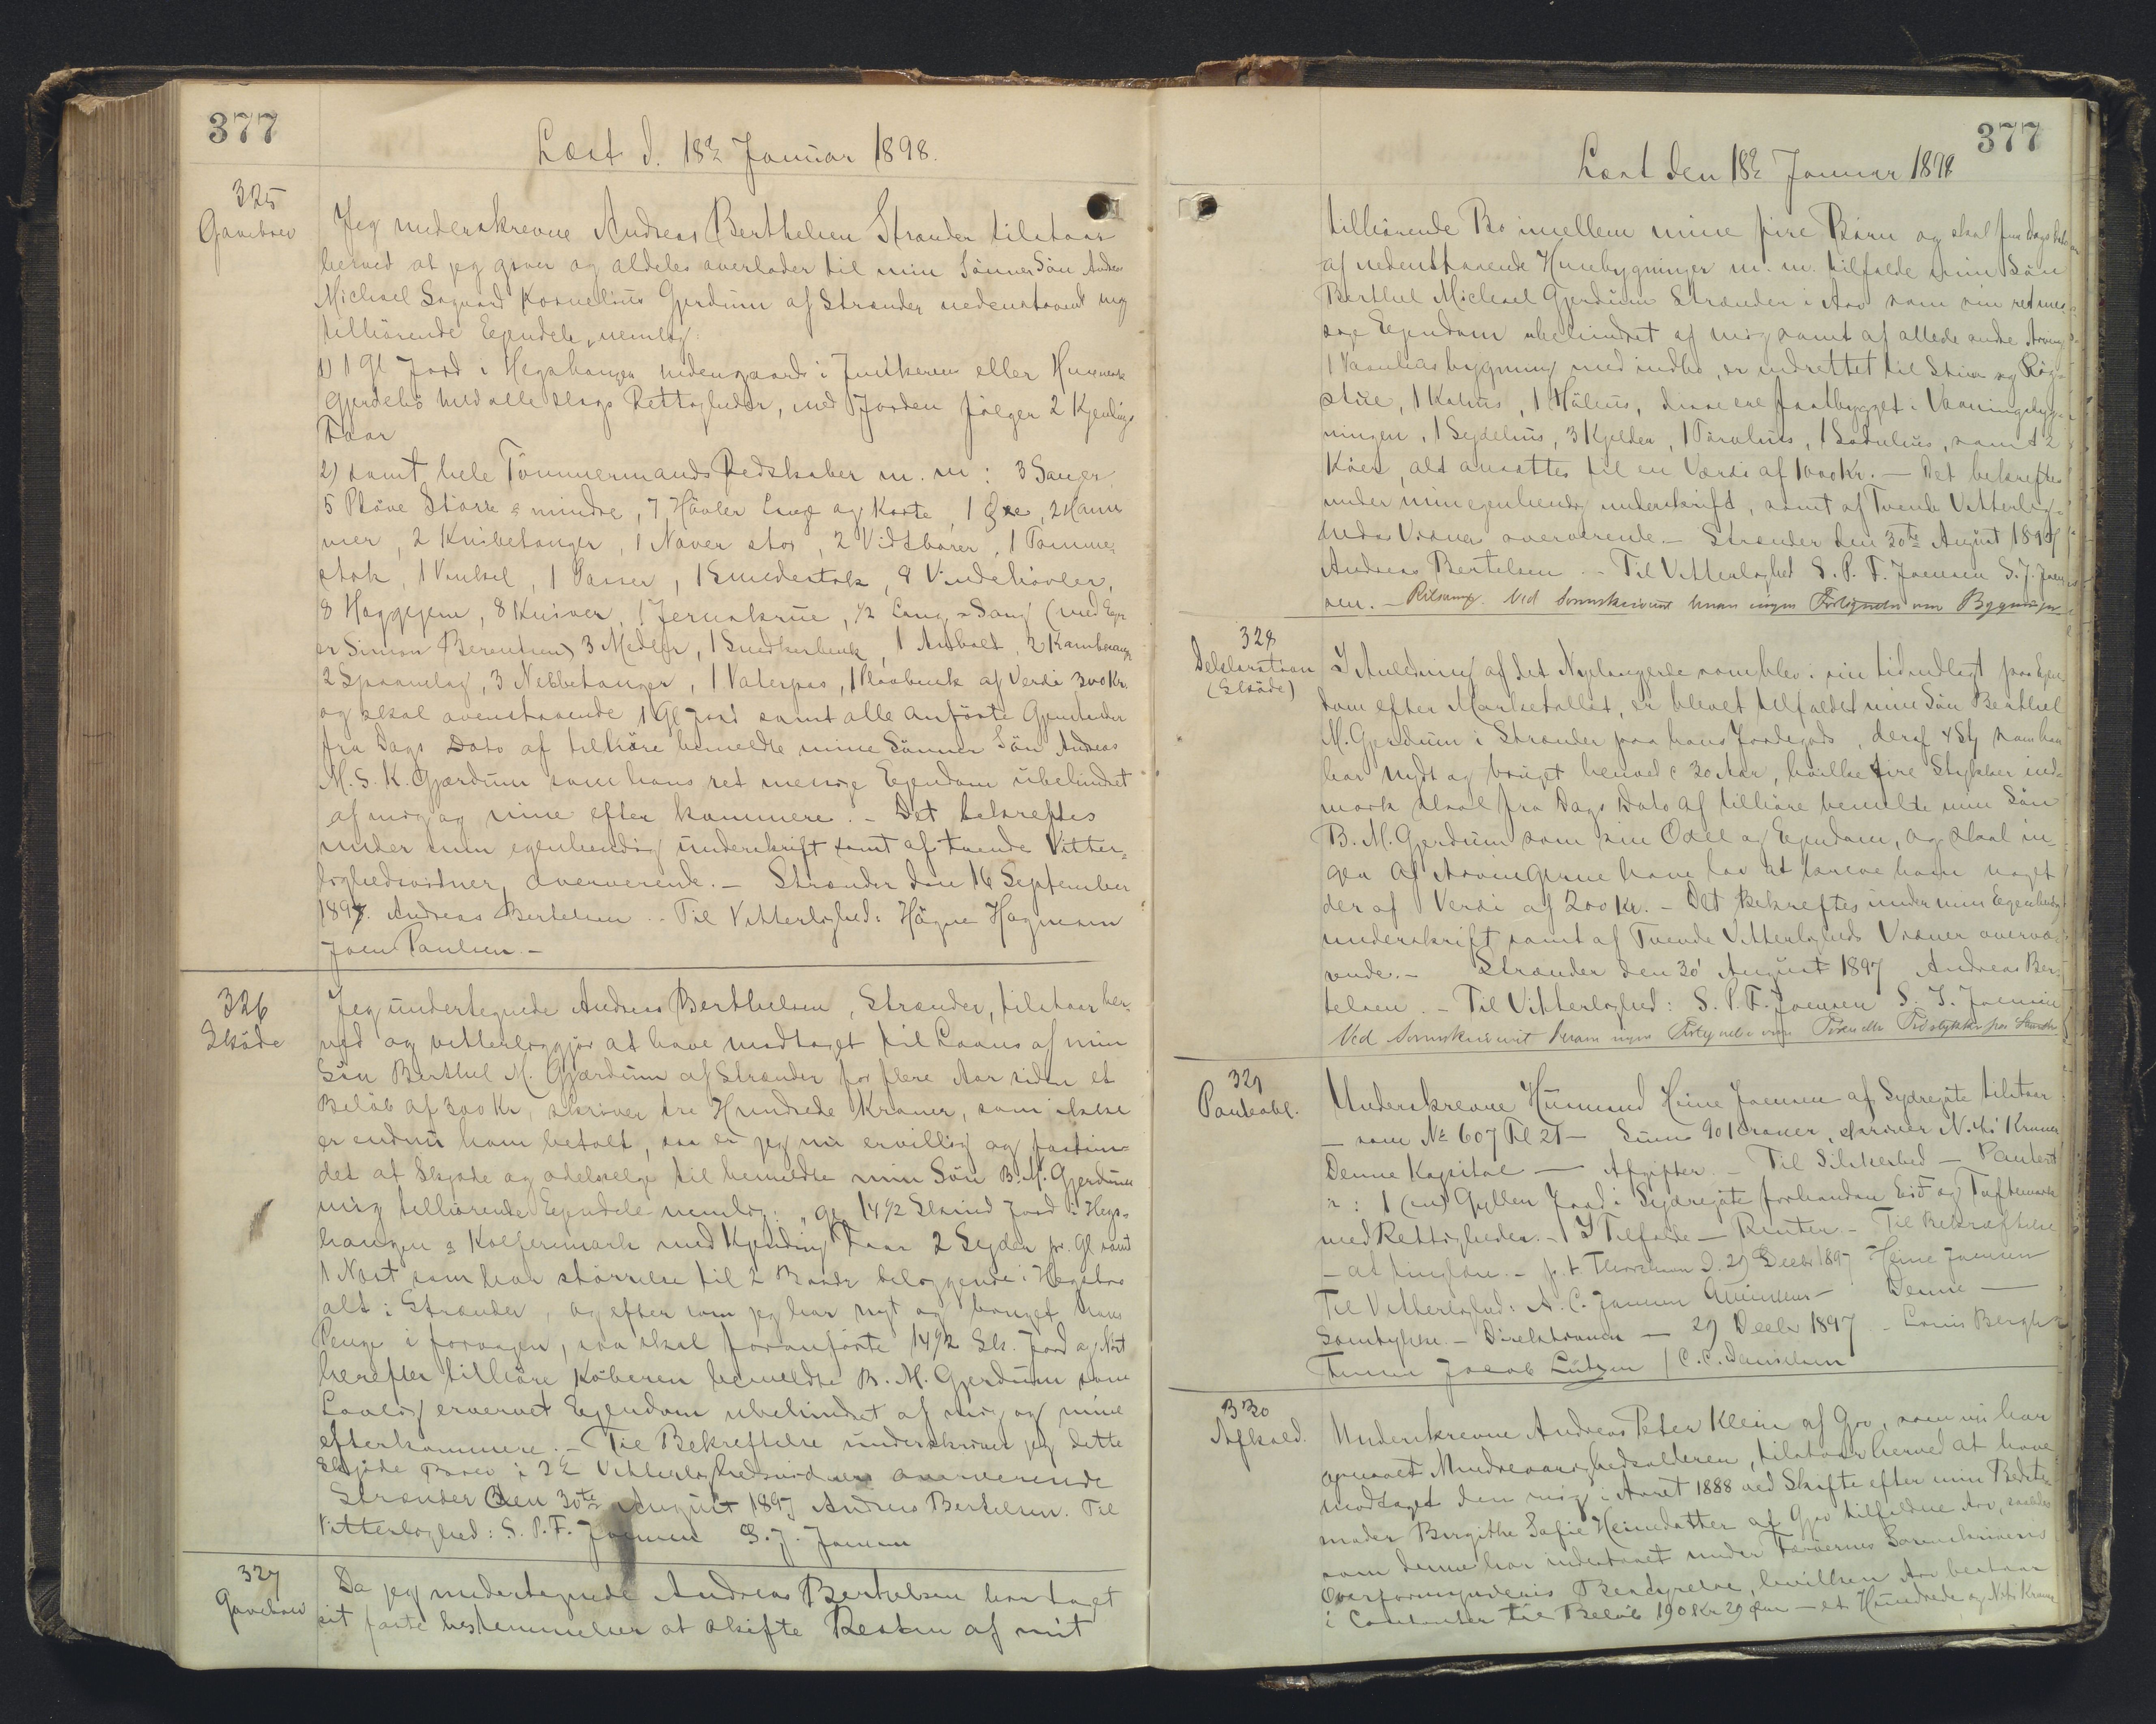 377
Læst d. 18de Januar 1898.
325
Gavebrev
Jeg underskrevne Andreas Berthelsen Strænder tilstaar
herved at jeg giver og aldeles overlader til min Sönner Sön Andreas
Michael Sogaard Kornelius Gjerdum af Strænder nedenstaaende mig
tilhörende Ejendele, nemlig:
1) 1 Gl Jord i Hegshaugen indengaards i i eller
med alle slags Rettigheder, med Jorden fölger 2 Kjendings
Faar
2) samt hele TömmermandsRedskaber m. m: 3 Sauger,
5 Plöve Större & mindre, 7 Hövler Lang og Korte, 1 Öxe, 2 Ham
mer, 2 Knibetanger, 1 Naver stor, 2 Vidtborer, 1 Tomme
stok, 1 Vinkel, 1 Passer, 1 , 9 ,
8 Huggejern, 8 Kniver, 1 Jernskrue, 1/2 Lang Saug (med Ejer
er Simon Berentsen) 3 , 1 Snedkerbenk, 1 Ambolt, 2
2 , 3 Nebbetanger, 1 Vaterpas, 1 af Verdi 300 Kr.
og skal ovenstaaende 1 Gl Jord samt alle anförte Gjenstander
fra Dags Dato af tilhöre bemeldte mine Sönner Sön Andreas
M. S. K. Gjærdum som hans ret messige Ejendom übehindret
af mig og mine efter kommere. – Det bekreftes
under min egenhendig ünderskrift samt af tvende Vitter=
lighedsvidner, oververende. – Strænder den 16 September
1897. Andreas Bertelsen – Til Vitterlighed: Högne Hognesen
Joen Paulsen –
326
Sköde
Jeg undertegnede Andreas Berthelsen, Strænder, tilstaar her-
ved og vitterliggjör at have modtaget til Laans af min
Sön Berthel M. Gjærdüm af Strænder for flere Aar siden et
Belöb af 300 Kr, skriver tre Hundrede Kroner, som ikke
er endnu ham betalt, saa er jeg nu ervillig og
det at Skjöde og odelselge til bemeldte min Sön B. M. Gjerdum
mig tilhörende Ejendele nemlig: gl 14 1/2 Skind Jord i Hegs=
haugen & med Kjending Faar 2 Seyder pr. Gl samt
1 Nöst som har störrelse til 2 Baade beliggende i
alt i Strænder, og efter som jeg har nyt og bruget hans
Penge i forveyen, saa skal foranförte 14 1/2 Sk. Jord og Nöst
herefter tilhöre Köberen bemeldte B. M. Gjerdum som
Lovlig ervervet Ejendom ubehindret af mig og mine
efterkommere. – Til Bekreftelse ünderskriver jeg dette
Skjöde Brev i 2de Vitterlighedsvidners oververende
Strænder Den 30te August 1897 Andreas Bertelsen. Til
Vitterlighed: S. P. F. Joensen S. J. Joensen
327
Gavebrev
Da jeg undertegnede Andreas Berthelsen har taget
sit faste bestemmelser at skifte Resten af mit
377
Læst den 18de Januar 1898
tilhörende Bo imellem mine fire Börn og skal fra Dags Dato
af nedenstaaende Husebygninger m. m. tilfalde min Sön
Berthel Michael Gjerdüm Strænder i Arv som sin retmes
sige Ejendom ubehindret af mig samt af allede andre Arving
1 Vaanhüsbygning med indbo, er indrettet til Stüe og Rög=
stüe, 1 Kohüs, 1 Höhüs, disse ere fastbygget i Vaaningsbyg=
ningen, 1 Seydehüs, 3 Kjelder, 1 Törvhüs, 1 , samt 2
Köer, alt ansattes til en Værdi af 1000 Kr. – Det bekreftes
under min egenhendig underskrift, samt af Tvende Vitterlig=
heds Vidner oververende. – Strænder den 30te August 1897
Andreas Bertelsen. – Til Vitterlighed S. P. F. Joensen S. J. Joen
sen. – Ved Sorenskriveriet haves ingen Forlignelse om Bygninger
328
Deklaration
(Sköde)
I Anledning af det som blev i sin tid indlagt paa Ejen
dom efter Marketallet, er blevet tilfaldet min Sön Berthel
M. Gjerdüm i Strænder paa hans Jordegods, deraf 4 Stk som han
har nydt og brüget henved 30 Aar, hvilke fire Stykker ind=
mark skal fra Dags Dato af tilhöre bemeldte min Sön
B. M. Gjerdüm som sin Odel og Ejendom, og skal in=
gen af Arvingerne have lov at kreve ham noget
der af Verdi af 200 Kr. – Det Bekreftes under min Egenhendig
ünderskrift samt af Tvende Vitterligheds Vidner overvæ=
rende. – Strænder den 30' August 1897 Andreas Ber=
telsen. – Til Vitterlighed: S. P. F. Joensen S. J. Joensen
Ved Sorenskriveriet haves ingen om eller
329
Panteobl.
Underskrevne Husmand Heine Joensen af Sydregöte tilstaar
– som No 607 Fol 21 – Sum 90 Kroner, skriver Niti Kroner
Denne Kapital – Afgifter – Til Sikkerhed – Panteret
i: 1 (en) Gyllen Jord i Sydregöte forhandan og
med Rettigheder. – I Tilfælde – Renter – Til Bekræftelse
– at tinglæse. – p. t. Thorshavn d. 29 Decbr 1897 Heine Joensen
Til Vitterlighed: A. C. Jensen – Denne –
Samtykke. – Direktionen – 29 Decbr 1897 – Louis Bergh
Jacob Lützen / C. C. Danielsen
330
Afkald.
Underskrevne Andreas Peter Klein af Gjov, som nu har
opnaaet Mindreaarighedsalderen, tilstaar herved at have
modtaget den mig i Aaret 1888 ved Skifte efter min Bedste
moder Birgithe Sofie Heinedatter af Gjov tilfaldne Arv, saaledes
som denne har indestaaet under Færöernes Sorenskriveris
Overformynderis Bestyrelse, hvilken Arv bestaar
i Contanter til Belöb 190 Kr 29 Öre – et Hundrede og Niti Kroner